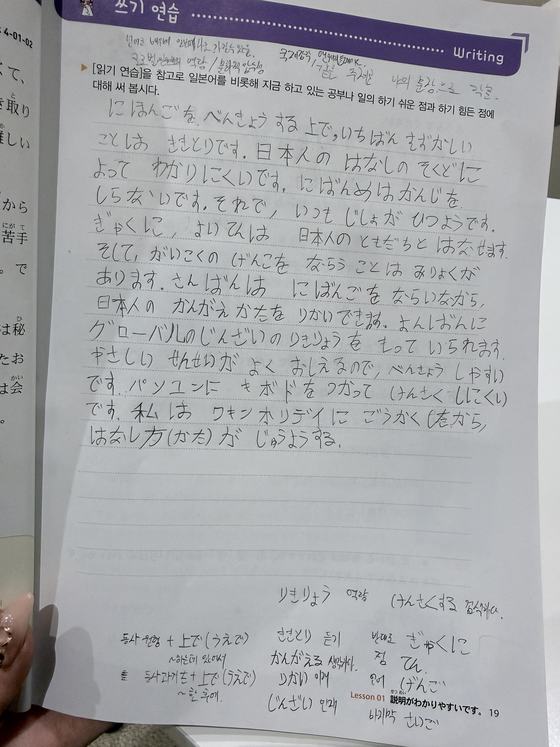 쓰기 연습
Writing
[읽기 연습]을 참고로 일본어를 비롯해 지금 하고 있는 공부나 일의 하기 쉬운 점과 하기 힘든 점에
대해 써 봅시다.
にほんごを、べんきょう する 上で、いちばん むずかしい
ことは ききとりです。日本人の はなしの そくどに
よって わかりにくいです。にばんめは かんじを
しらないです。それで、いつも じしょが ひつようです。
ぎゃくに、よい てんは 日本人の ともだちと はなせます。
そして、がいこくの げんごを ならう ことは みりょくが
あります。さんばんは にほんごを ならいながら、
日本人の かんがえ かたを りかいできます。よんばんに
グローバルのじんざいの りきりょうを もって いられます。
やさしい せんせいが よく おしえるので、べんきょう しやすい
です。パソユンに キボドを つかって けんさく しにくい
です。私は ワキンホリデイに ごうかく したから、
はなし方(かた)が じゅうようする。
りきりょう 역량 けんさくする 검색하다.
동사 원형 + 上で(うえで) ききとり 듣기 반대로 ぎゃくに
~하는데 있어서 かんがえる 생각하다. 점 てん.
동사과거た + 上で(うえで) りかい 이해 언어 げんご
~한 후에. じんざい 인재 마지막 さいご
Lesson 01 説明がわかりやすいです。 19
4-01-02
て、
取り
しい
から
苦手
。で
は秘
たお
は会